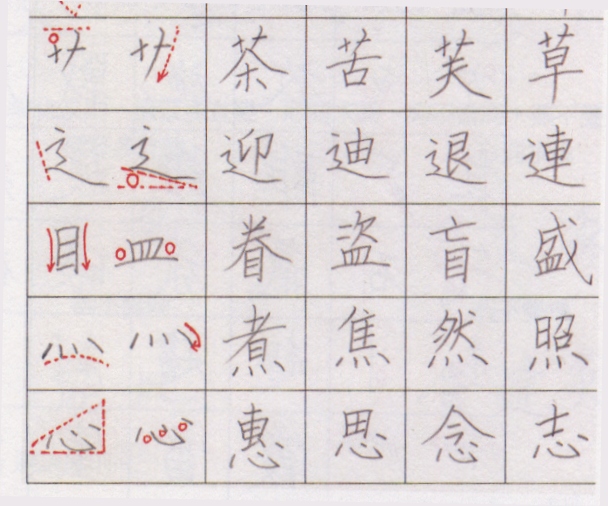 艹 艹 茶 苦 芙 草
辶 辶 迎 迪 退 連
目 皿 眷 盜 盲 盛
灬 灬 煮 焦 然 照
心 心 惠 思 念 志